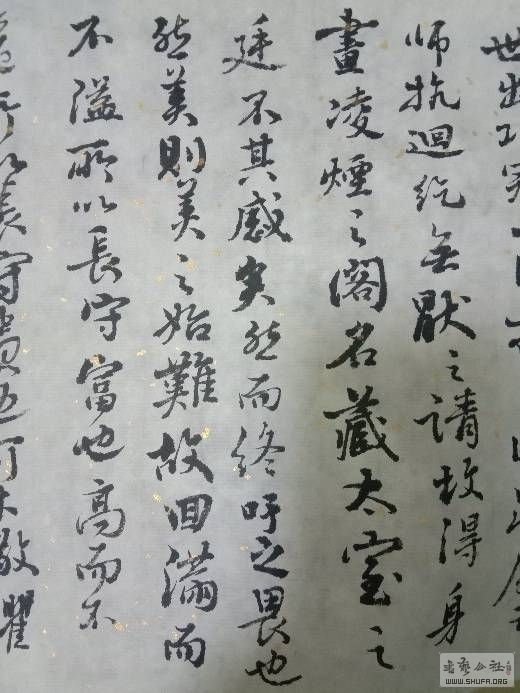 世出功冠
师抗迴纥無猒之請故得身
畫凌煙之阁名藏太室之
廷不其盛矣然而终吁之畏也
然美則美之始難故曰滿而
不溢所以長守富也高而不
危所以長守貴也可不儆懼
書藝公社
WWW.SHUFA.ORG